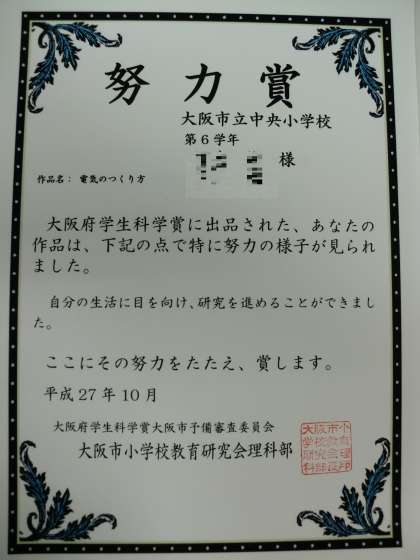 努力賞
大阪市立中央小学校
第6学年
様
作品名: 電気のつくり方
大阪府学生科学賞に出品された、あなたの
作品は、下記の点で特に努力の様子が見られ
ました。
自分の生活に目を向け、研究を進めることができまし
た。
ここにその努力をたたえ、賞します。
平成27年10月
大阪府学生科学賞大阪市予備審査委員会
大阪市小学校教育研究会理科部
大阪市小
学校教育
研究会理
科部長印